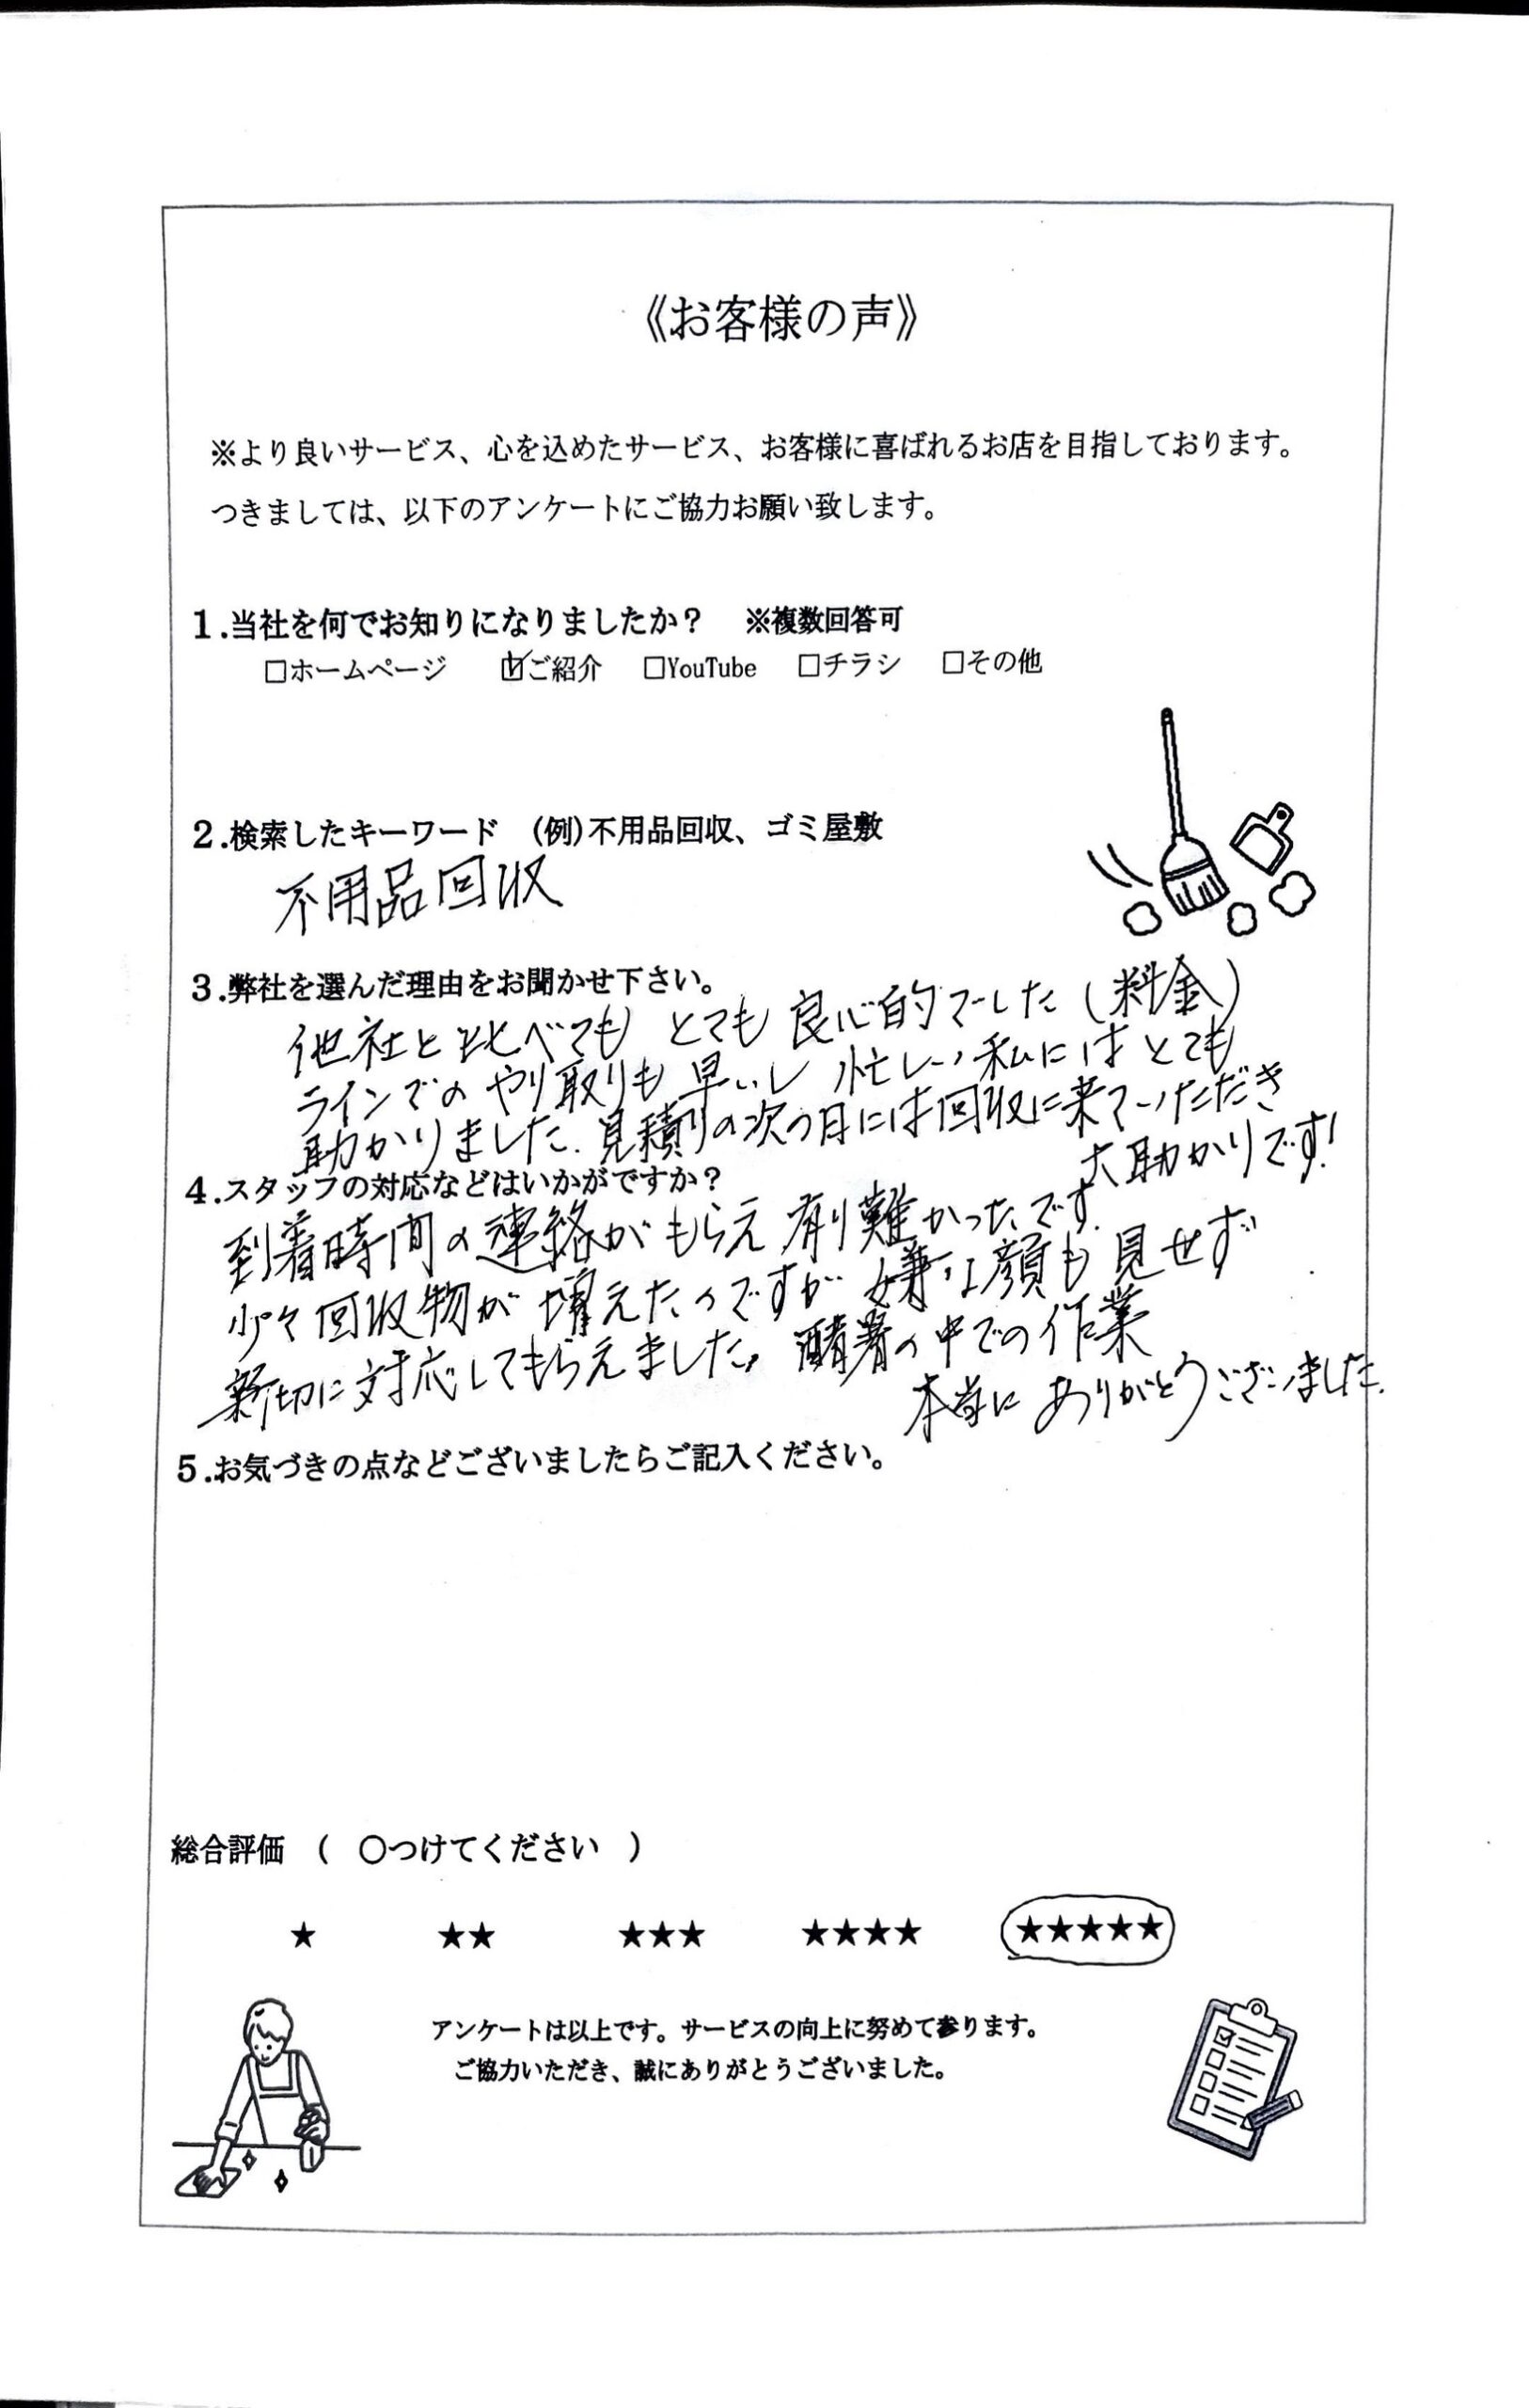 《お客様の声》
※より良いサービス、心を込めたサービス、お客様に喜ばれるお店を目指しております。
つきましては、以下のアンケートにご協力お願い致します。
1.当社を何でお知りになりましたか？　※複数回答可
□ホームページ　☑ご紹介　□YouTube　□チラシ　□その他
2.検索したキーワード　(例)不用品回収、ゴミ屋敷
不用品回収
3.弊社を選んだ理由をお聞かせ下さい。
他社と比べても とても 良心的でした（料金）
ラインでの やり取りも 早いし 忙しい私には とても
助かりました. 見積りの次の日には回収に来ていただき
大助かりです!
4.スタッフの対応などはいかがですか？
到着時間の連絡が もらえ 有り難かったです.
少々回収物が 増えたのですが 嫌な顔も見せず
親切に対応してもらえました。酷暑の中での作業
本当に ありがとうございました.
5.お気づきの点などございましたらご記入ください。
総合評価　(　○つけてください　)
★　★★　★★★　★★★★　★★★★★
アンケートは以上です。サービスの向上に努めて参ります。
ご協力いただき、誠にありがとうございました。